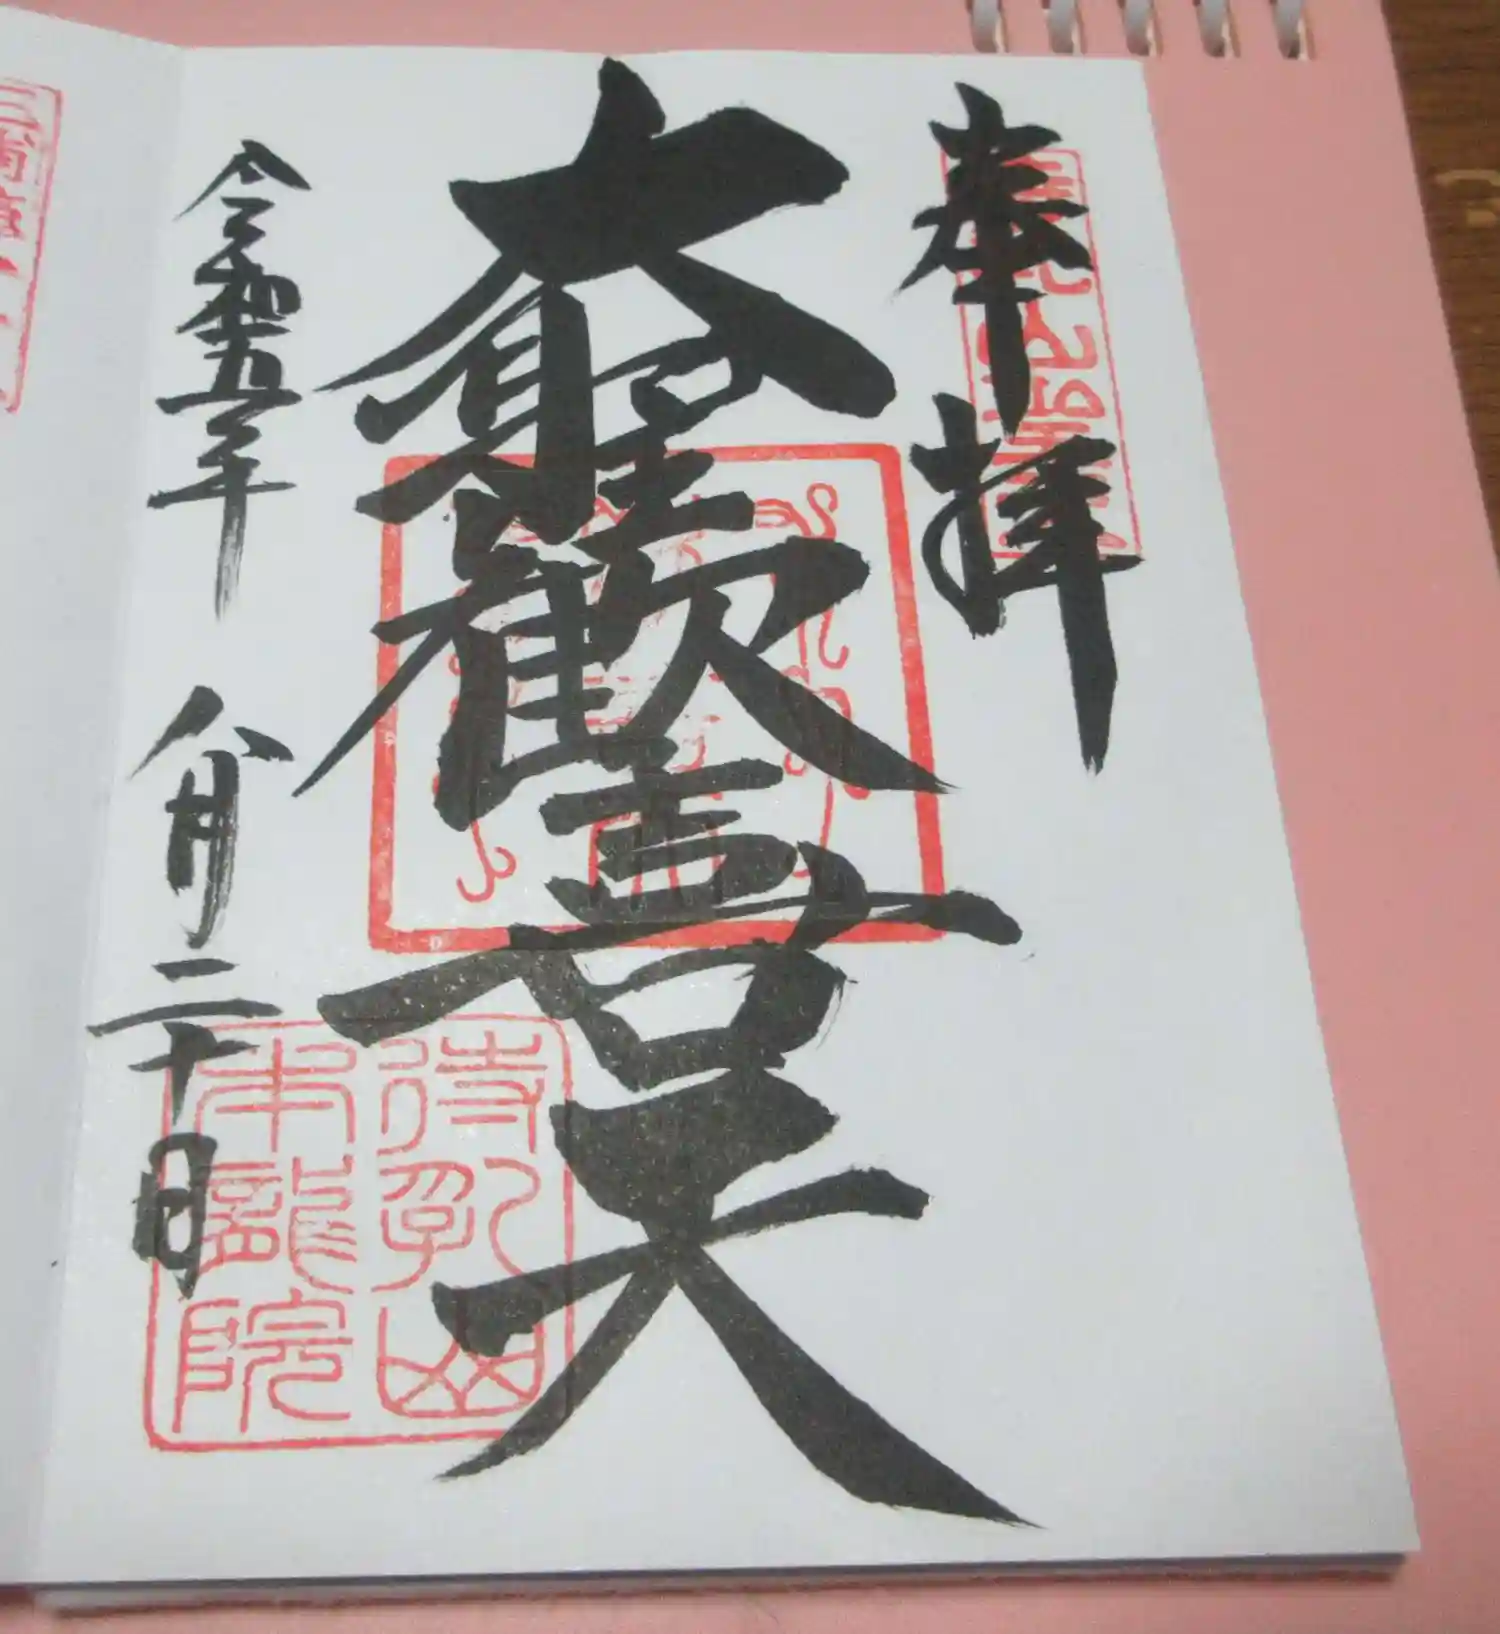 奉拝
大聖歓喜天
令和五年 八月二十日
待乳山
本龍院